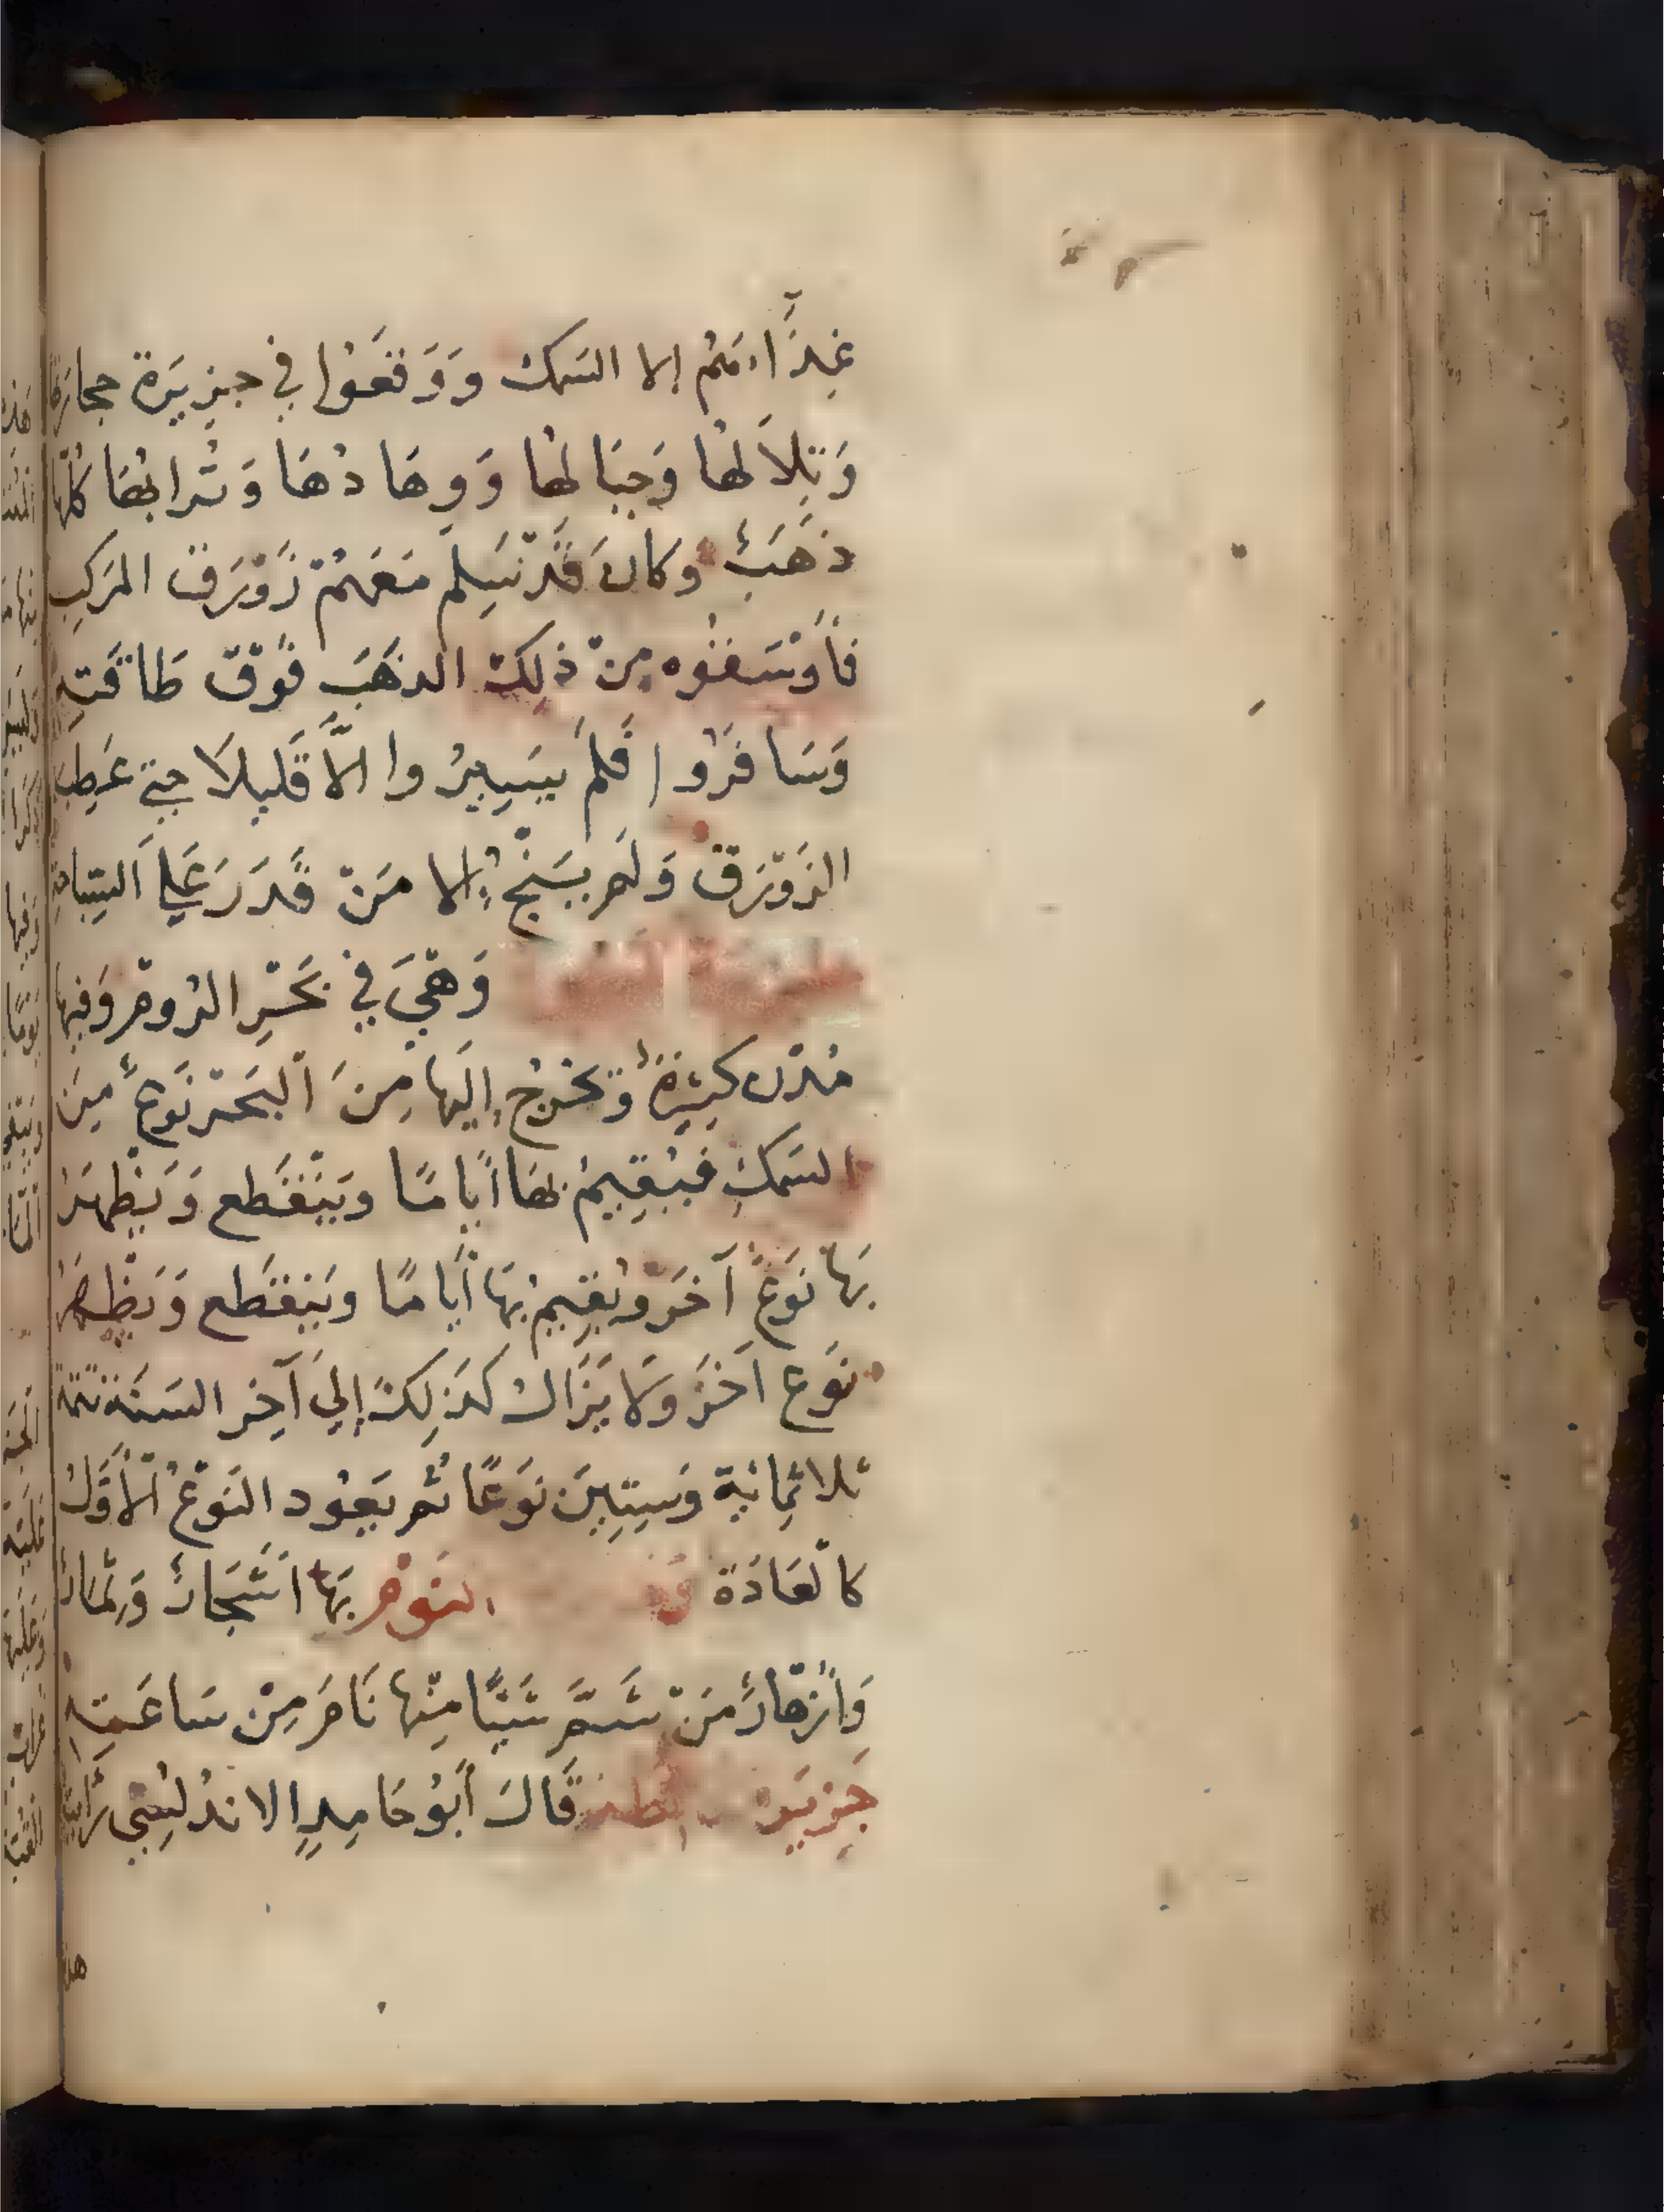 غِذَاءهُم إلا السَمك وَوَقعَوُا في جزيَرة حجارتها
وَتِلاَلهُا وَجبَالهُا وَوِهَادُهَا وَتُرابُهَا كُلّهَا
ذَهَبٌ وَكانَ قَدْ سَلِمَ مَعَهُمْ زَوْرَق المَركِبِ
فأَوْسَقُوه مِنْ ذلِكَ الذهَبِ فَوْق طَاقَتِهِ
وَسَافرَوُا فَلم يسَيِرُوا الاَّ قَليلاً حتي عَطِبَ
الزَوْرَق وَلَم يَنْجُ إلا مَنْ قَدَرَ عَلي السِّبَاحَةِ
وَهْيَ في بَحْرِ الرُوم وَفيها
مُدُن كثيرَةٌ وَتخرج إليَها مِنَ اَلبَحْر نَوعٌ مِنَ
السَمكِ فيُقِيمُ بهَا أيامًا وَيَنْقَطع وَيَظْهَرُ
بهَا نَوعٌ آخَر ويُقيمُ بهَا أيَامًا وَيَنقَطع وَيَظْهَرُ
نَوع اَخَر وَلا يزَال كَذلِكَ إليَ آخِر السَنَة تتمة
ثلاثمِائة وَسِتِينَ نوَعًا ثُم يَعُود النَوْعُ الأَوَّلُ
كالعَادَة النَوْم بهَا اَشَجَارٌ وَثِمَارٌ
وَأَزهَارٌ مَنْ شَمَّ شَيْئًا مِنْها نَامَ مِنْ سَاعَتِهِ
جَزيَرة قَالَ أَبُو حَامِدٍ الاندلُسِي رَأيتُ
هذ